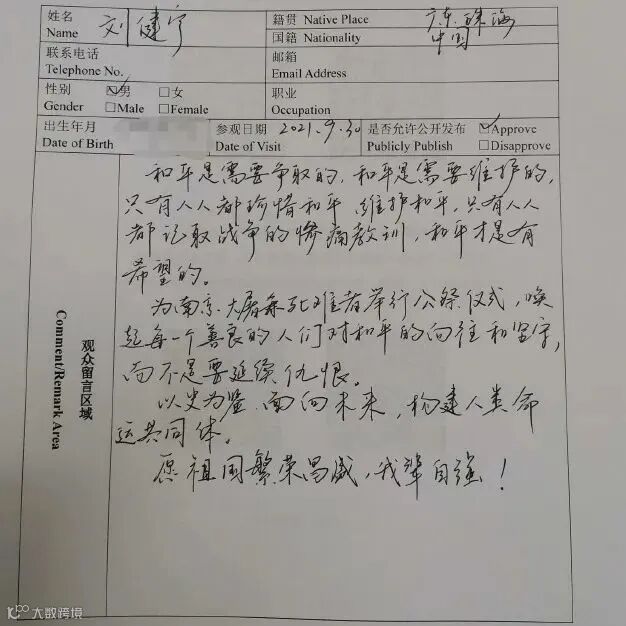 姓名 Name 刘健宁 籍贯 Native Place 广东 珠海
国籍 Nationality 中国
联系电话 Telephone No. 邮箱 Email Address
性别 Gender ☑男 Male □女 Female 职业 Occupation
出生年月 Date of Birth 参观日期 Date of Visit 2021.9.30 是否允许公开发布 Publicly Publish ☑Approve □Disapprove
观众留言区域
Comment/Remark Area
和平是需要争取的,和平是需要维护的,
只有人人都珍惜和平,维护和平,只有人人
都记取战争的惨痛教训,和平才是有
希望的。
为南京大屠杀死难者举行公祭仪式,唤
起每一个善良的人们对和平的向往和坚守,
而不是要延续仇恨。
以史为鉴,面向未来,构建人类命
运共同体。
愿祖国繁荣昌盛,我辈自强!
大数跨境